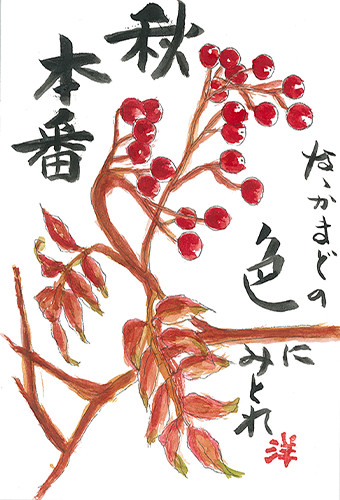 秋
本番
なゝかまどの
色に
みとれ
洋